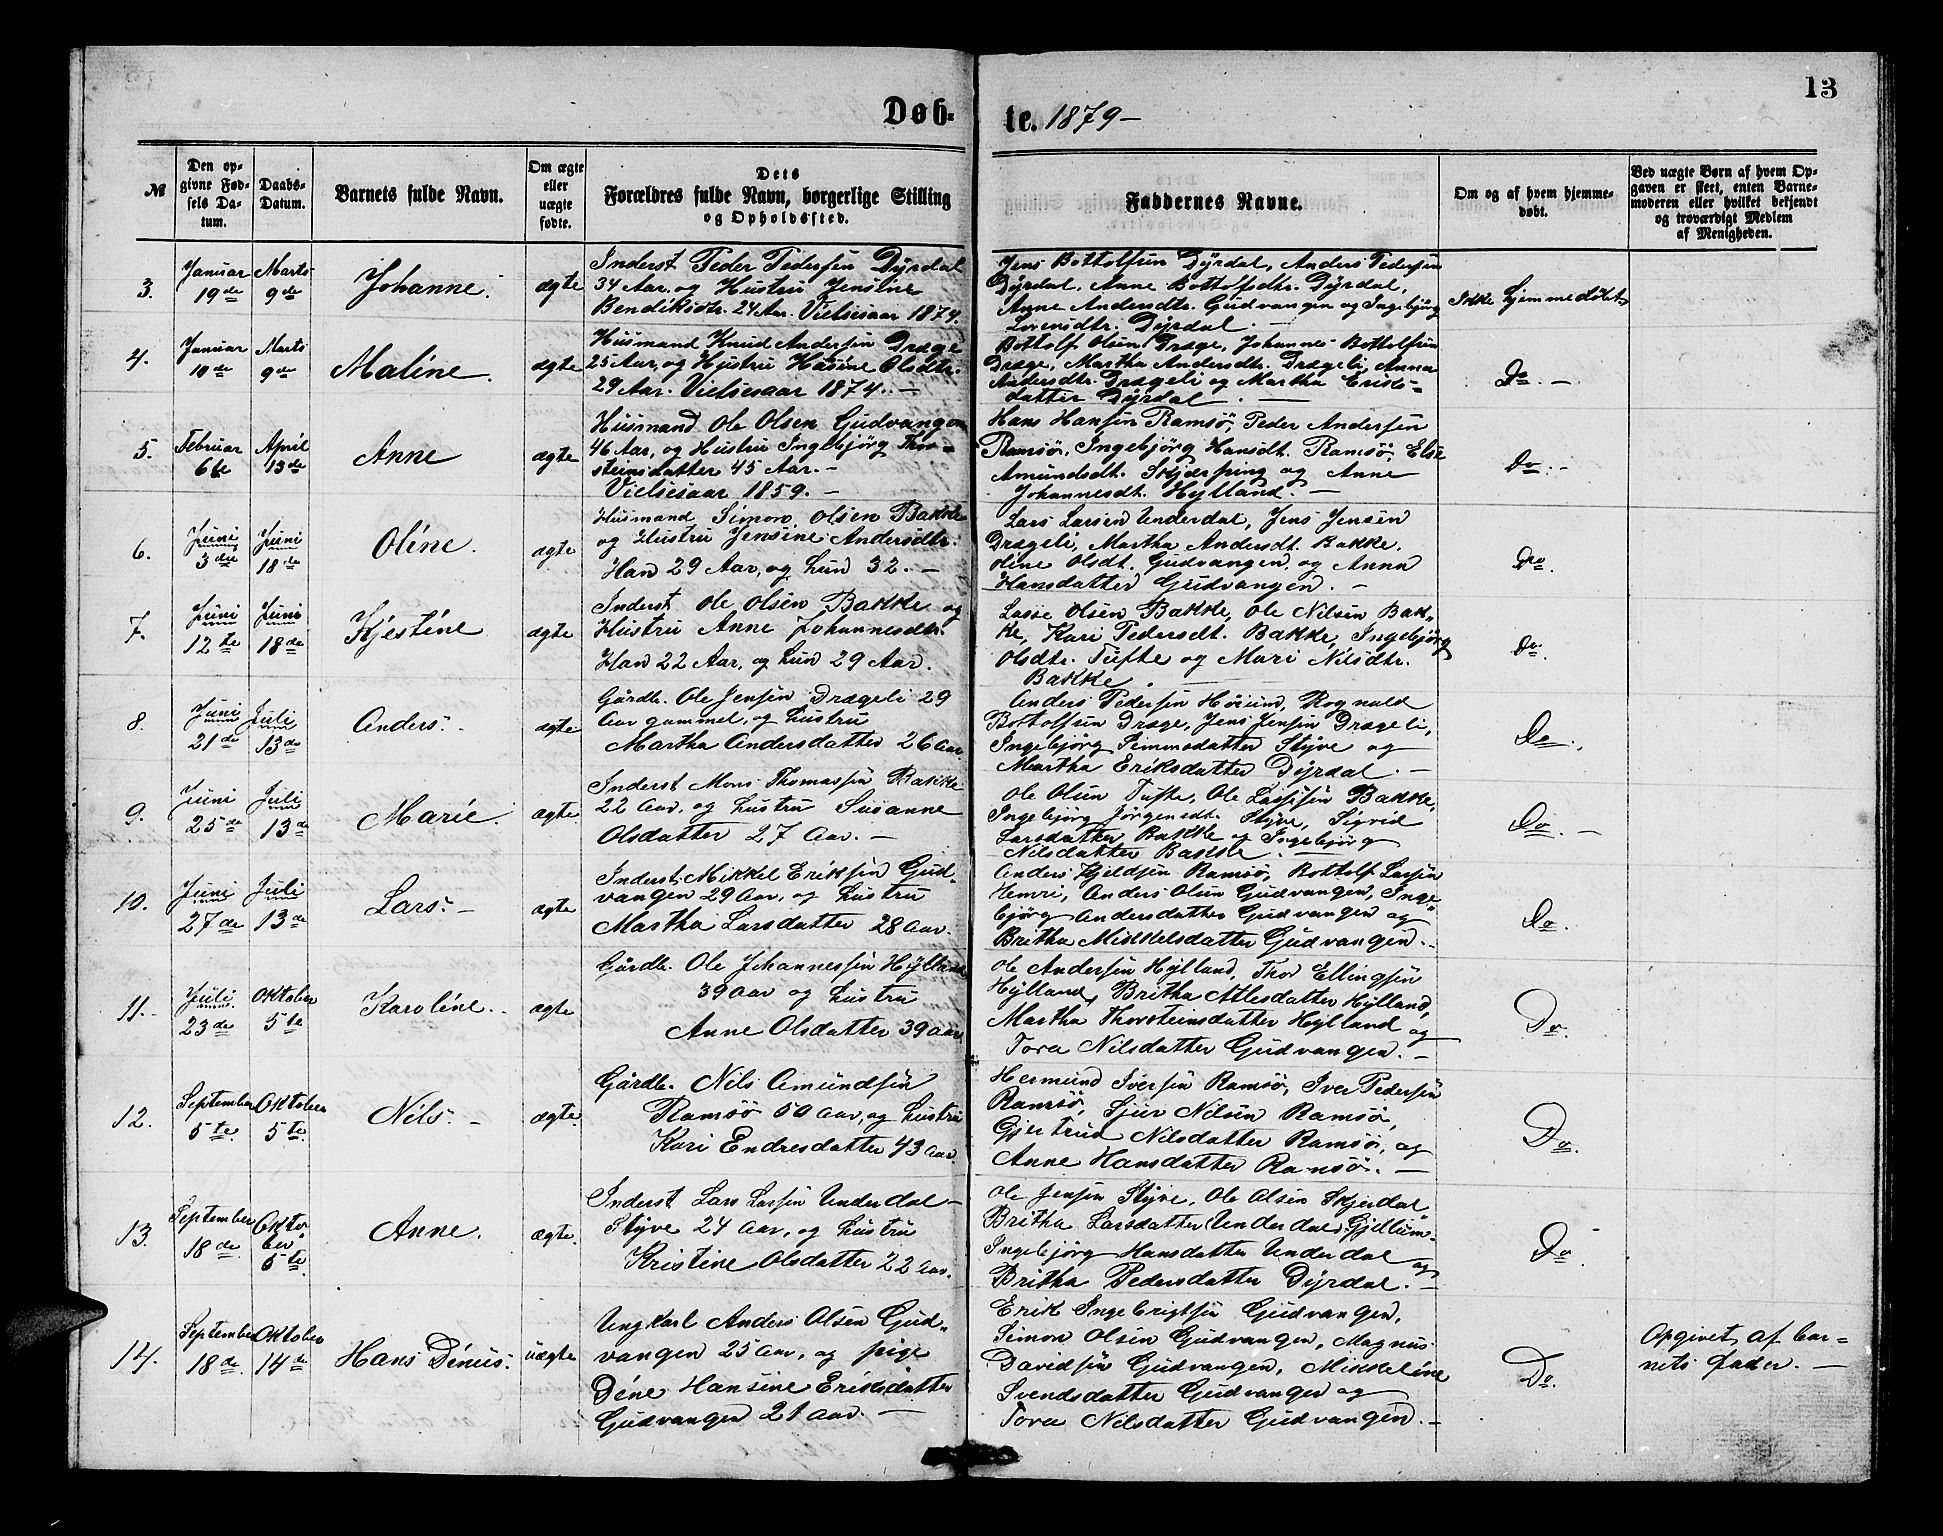 13
Døb-
te. 1879 –
№
Den op-
givne Fød-
sels Da-
tum.
Daabs-
Datum.
Barnets fulde Navn.
Om ægte
eller
uægte
fødte.
Dets
Forældres fulde Navn, borgerlige Stilling
og Opholdssted.
Faddernes Navne.
Om og af hvem hjemme-
døbt.
Ved uægte Børn af hvem Op-
gaven er skeet, enten Barne-
moderen eller hvilket bekjendt
og troværdigt Medlem
af Menigheden.
3.
Januar
19de
Marts
9de
Johanne.
ægte
Inderst Peder Pedersen Dyrdal
34 Aar, og Hustru Jensine
Bendiksdtr. 24 Aar. Vielsesaar 1874.
Jens Bottolfsen Dyrdal, Anders Pedersen
Dyrdal, Anne Bottolfsdtr. Dyrdal,
Anne Andersdtr. Gudvangen og Ingebjørg
Lorensdtr. Dyrdal. –
Ikke hjemmedøbt
4.
Januar
10de
Marts
9de
Maline.
ægte
Husmand Knud Andersen Drægo
25 Aar, og Hustru Hansine Olsdtr.
29 Aar. Vielsesaar 1874. –
Bottolf Olsen Dræge, Johannes Bottolfsen
Dræge, Martha Andersdtr. Drægeli, Anna
Andersdtr. Drægeli og Martha Eriks-
datter Dyrdal. –
Do. –
5.
Februar
6te
April
13de
Anne
ægte
Husmand Ole Olsen Gudvangen
46 Aar, og Hustru Ingebjørg Thor-
steinsdatter 45 Aar. –
Vielsesaar 1859. –
Hans Hansen Ramsø, Peder Andersen
Ramsø, Ingebjørg Hansdt. Ramsø, Else
Amundsdt. Skjerping og Anne
Johannesdt. Hylland. –
Do. –
6.
Juni
3die
Juni
18de
Oline.
ægte
Husmand Simon Olsen Bakke
og Hustru Jensine Andersdtr.
Han 29 Aar, og hun 32. –
Lars Larsen Underdal, Jens Jensen
Drægeli, Martha Andersdt. Bakke,
Oline Olsdt. Gudvangen og Anna
Hansdatter Gudvangen. –
Do.
7.
Juni
12te
Juni
18de
Kjestine
ægte
Inderst Ole Olsen Bakke og
Hustru Anne Johannesdtr.
Han 22 Aar, og hun 29 Aar.
Lasse Olsen Bakke, Ole Nilsen Bak-
ke, Kari Pedersdt. Bakke, Ingebjørg
Olsdtr. Tufte og Mari Nilsdtr.
Bakke.
Do.
8.
Juni
21de
Juli
13de
Anders. –
ægte
Gårdb. Ole Jensen Drægeli 29
Aar gammel, og hustru
Martha Andersdatter 26 Aar.
Anders Pedersen Høiund, Rognald
Bottolfsen Dræge, Jens Jensen Drægeli,
Ingebjørg Simonsdatter Styve og
Martha Eriksdatter Dyrdal. –
Do.
9.
Juni
25de
Juli
13de
Marie.
ægte
Inderst Mons Thomassen Bakke
22 Aar, og hustru Susanne
Olsdatter 27 Aar. –
Ole Olsen Tufte, Ole Lassesen Bakke,
Ingebjørg Jörgensdt. Styve, Sigrid
Larsdatter Bakke og Ingebjørg
Nilsdatter Bakke. –
Do. –
10.
Juni
27de
Juli
13de
Lars. –
ægte
Inderst Mikkel Eriksen Gud-
vangen 29 Aar, og hustru
Martha Larsdatter 28 Aar.
Anders Kjeldsen Ramsø, Bottolf Larsen
Hemri, Anders Olsen Gudvangen, Inge-
bjørg Andersdatter Gudvangen og
Britha Mikkelsdatter Gudvangen. –
Do.
11. –
Juli
23de
Oktober
5te
Karoline. –
ægte
Gårdb. Ole Johannessen Hylland
39 Aar og hustru
Anne Olsdatter 39 Aar.
Ole Andersen Hylland, Thor Ellingsen
Hylland, Britha Atlesdatter Hylland,
Martha Thorsteinsdatter Hylland og
Tora Nilsdatter Gudvangen. –
Do.
12.
September
5te
Oktober
5te
Nils. –
ægte.
Gårdb. Nils Amundsen
Ramsø 50 Aar, og hustru
Kari Endresdatter 43 Aar.
Hermund Iversen Ramsø, Iver Pedersen
Ramsø, Sjur Nilsen Ramsø,
Gjertrud Nilsdatter Ramsø, og
Anne Hansdatter Ramsø. –
Do.
13.
September
18de
Okto-
ber
5te
Anne.
ægte.
Inderst Lars Larsen Underdal –
Styve 24 Aar, og hustru
Kristine Olsdatter 22 Aar.
Ole Jensen Styve, Ole Olsen Skjerdal
Britha Larsdatter (Underdal)
Ingebjørg Hansdatter Underdal og
Britha Pedersdatter Dyrdal. –
Do
14.
September
18de
Oktober
14de
Hans Dinius.
uægte
Ungkarl Anders Olsen Gud-
vangen 25 Aar, og pige
Dine Hansine Eriksdatter
Gudvangen 21 Aar. –
Erik Ingebrigtsen Gudvangen,
Simon Olsen Gudvangen, Magnus
Davidsen Gudvangen, Mikkeline
Svendsdatter Gudvangen og
Tora Nilsdatter Gudvangen. –
Do.
Opgivet af bar-
nets fader. –